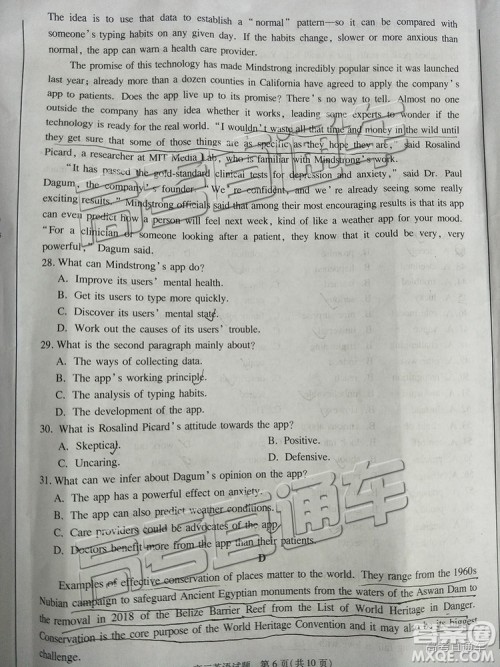 The idea is to use that data to establish a "normal" pattern—so it can be compared with
someone's typing habits on any given day. If the habits change, slower or more anxious than
normal, the app can warn a health care provider.
The promise of this technology has made Mindstrong incredibly popular since it was launched
last year; already more than a dozen counties in California have agreed to apply the company's
app to patients. Does the app live up to its promise? There's no way to tell. Almost no one
outside the company has any idea whether it works, leading some experts to wonder if the
technology is ready for the real world. "I wouldn't waste all that time and money in the wild until
they get sure that some of those things are as specific as they hope they are," said Rosalind
Picard, a researcher at MIT Media Lab, who is familiar with Mindstrong's work.
"It has passed the gold-standard clinical tests for depression and anxiety," said Dr. Paul
Dagum, the company's founder. "We're confident, and we're already seeing some really
exciting results." Mindstrong officials said that among their most encouraging results is that its app
can even predict how a person will feel next week, kind of like a weather app for your mood.
"For a clinician or someone looking after a patient, they know that it could be very, very
powerful," Dagum said.
28. What can Mindstrong's app do?
A. Improve its users' mental health.
B. Get its users to type more quickly.
C. Discover its users' mental state.
D. Work out the causes of its users' trouble.
29. What is the second paragraph mainly about?
A. The ways of collecting data.
B. The app's working principle.
C. The analysis of typing habits.
D. The development of the app.
30. What is Rosalind Picard's attitude towards the app?
A. Skeptical. B. Positive.
C. Uncaring. D. Defensive.
31. What can we infer about Dagum's opinion on the app?
A. The app has a powerful effect on anxiety.
B. The app can also predict weather conditions.
C. Care providers could be advocates of the app.
D. Doctors benefit more from the app than their patients.
D
Examples of effective conservation of places matter to the world. They range from the 1960s
Nubian campaign to safeguard Ancient Egyptian monuments from the waters of the Aswan Dam to
the removal in 2018 of the Belize Barrier Reef from the List of World Heritage in Danger.
Conservation is the core purpose of the World Heritage Convention and it may also be its biggest
challenge.
英语试题 第6页(共10页)
高考直通车
高考直通车
答案圈
MXQE.COM